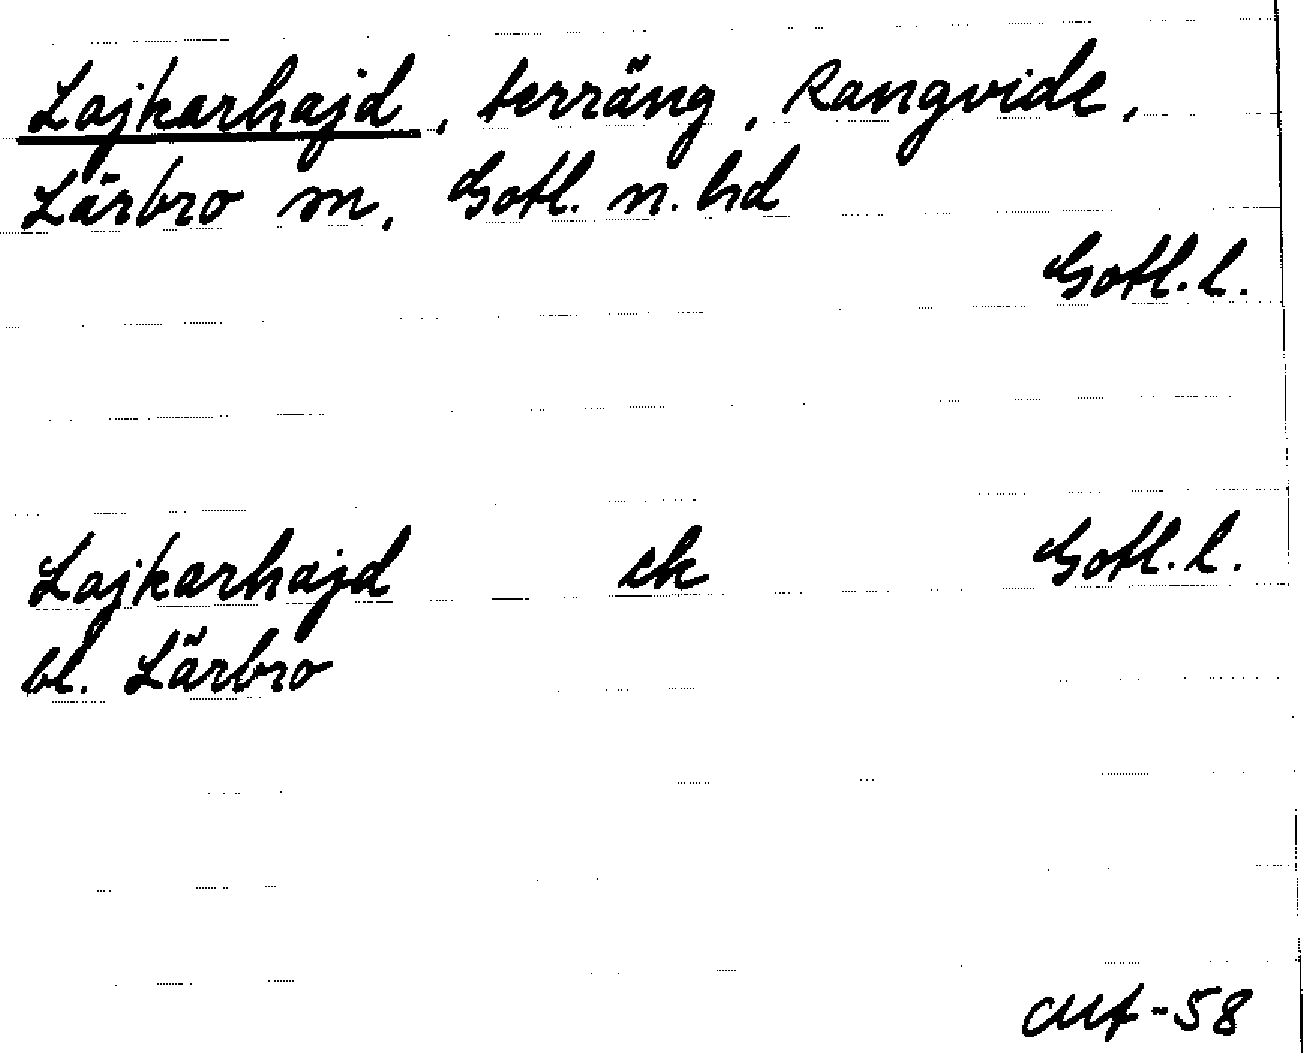 Lajkarhajd, terräng, Rangvide,
Lärbro sn, Gotl. n. hd
Gotl. l.
Lajkarhajd ek Gotl. l.
bl. Lärbro
-58